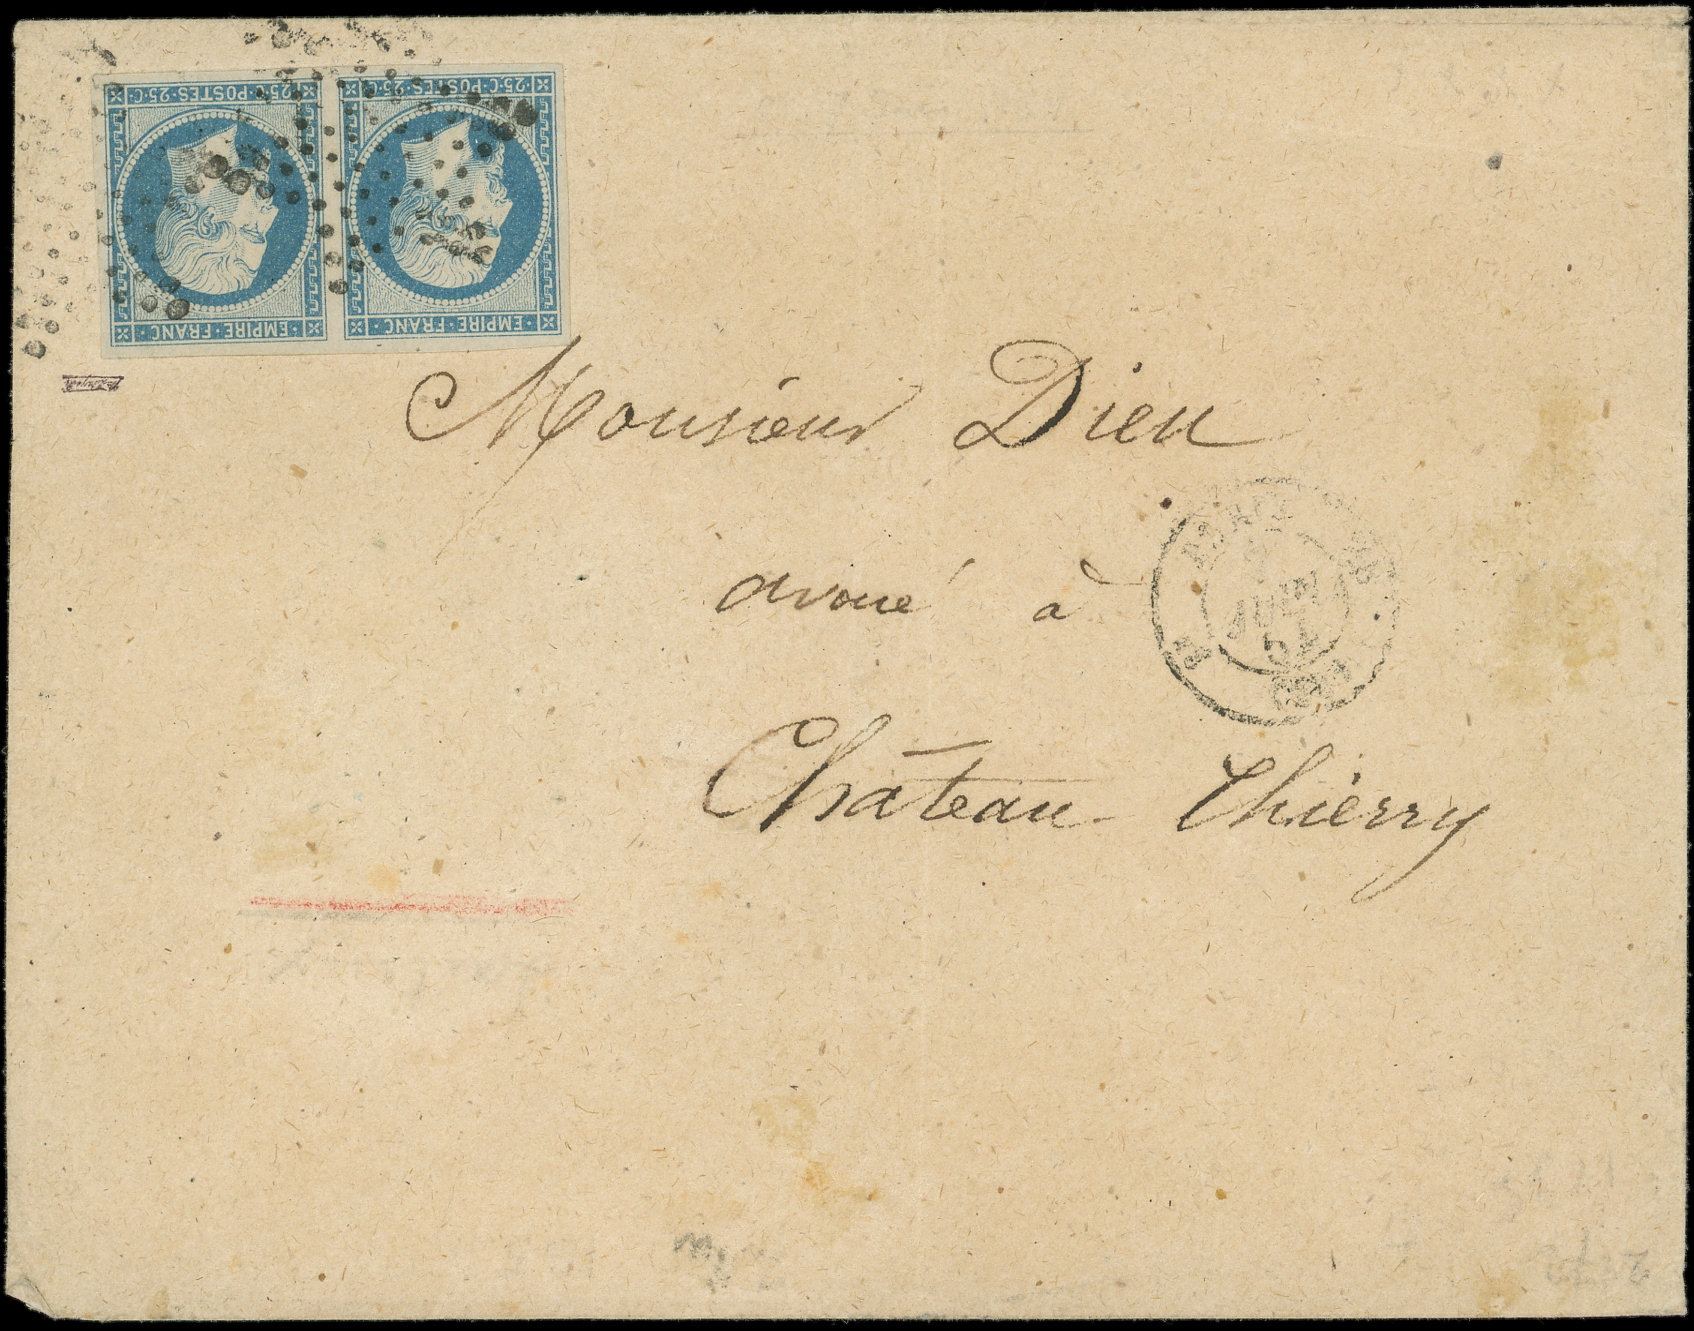 25·C·POSTES·25·C
EMPIRE·FRANC·
25·C·POSTES·25·C
EMPIRE·FRANC·
Monsieur Dieu
avoué à
Château-Thierry